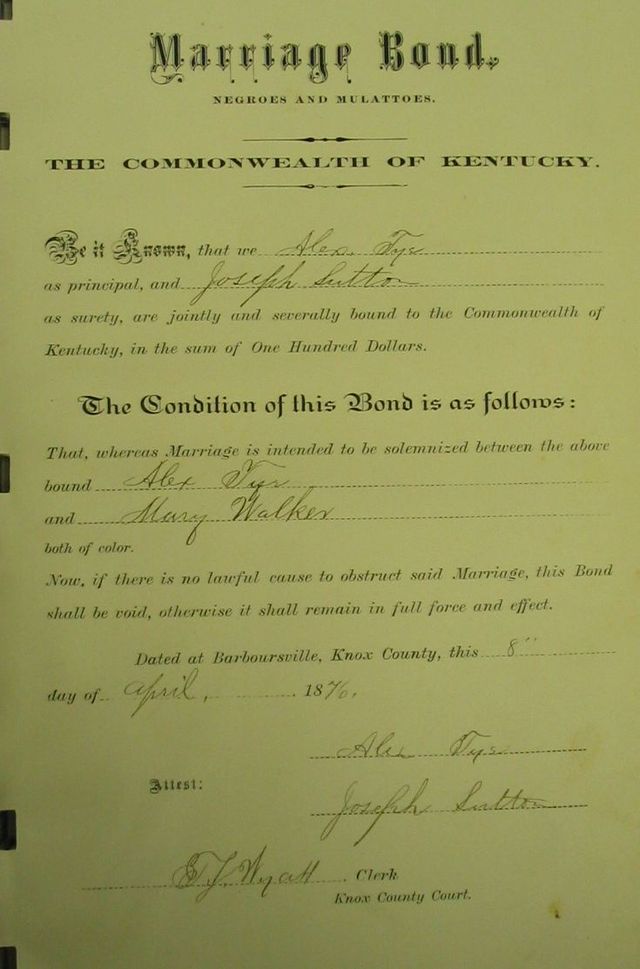 Marriage Bond.
NEGROES AND MULATTOES.
THE COMMONWEALTH OF KENTUCKY.
Be it Known, that we Alex Tye
as principal, and Joseph Sutton
as surety, are jointly and severally bound to the Commonwealth of
Kentucky, in the sum of One Hundred Dollars.
The Condition of this Bond is as follows:
That, whereas Marriage is intended to be solemnized between the above
bound Alex Tye
and Mary Walker
both of color.
Now, if there is no lawful cause to obstruct said Marriage, this Bond
shall be void, otherwise it shall remain in full force and effect.
Dated at Barboursville, Knox County, this 8"
day of April, 187
Alex Tye
Attest:
Joseph Sutton
Wyatt Clerk
Knox County Court.